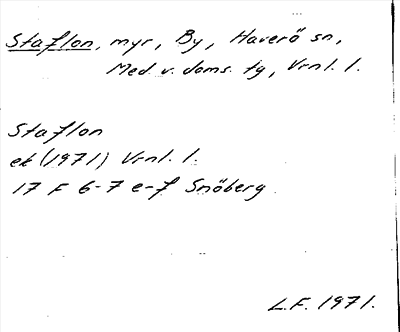 Staflon, myr, By, Haverö sn,
Med. v. doms. tg, Vrnl. l.
Staflon
ek (1971) Vrnl. l.
17 F 6-7 e-f Snöberg
L.F. 1971.